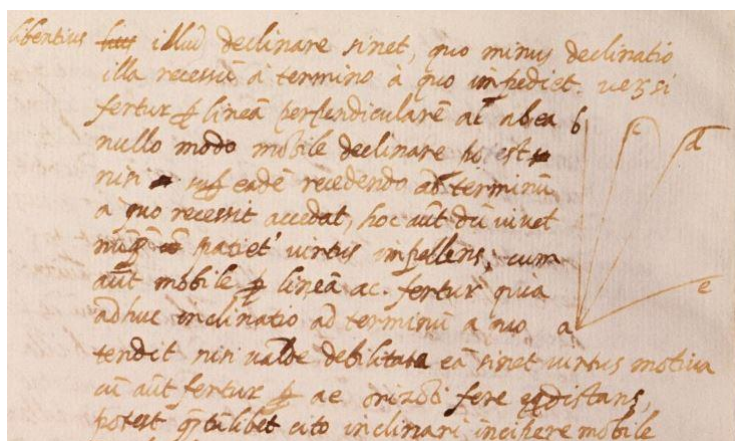 libentius illud declinare sinet, quo minus declinatio
illa recessũ à termino à quo impediet. verum si
fertur ꝑ lineã perpendicularẽ ab ab ea b c d
nullo modo mobile declinare potest
nisi sup eadẽ recedendo ad terminũ
a quo recessit accedat, hoc aũt dũ vivet
nũꝗ patiet' virtus impellens; cum
aũt mobile ꝑ lineã ac. fertur qua
adhuc inclinatio ad terminũ a quo a e
tendit nisi valde debilitata eã sinet virtus motiva
cũ aũt fertur ꝑ ae orizõti fere eq̃distans,
potest q̃tũlibet cito inclinari incipere mobile